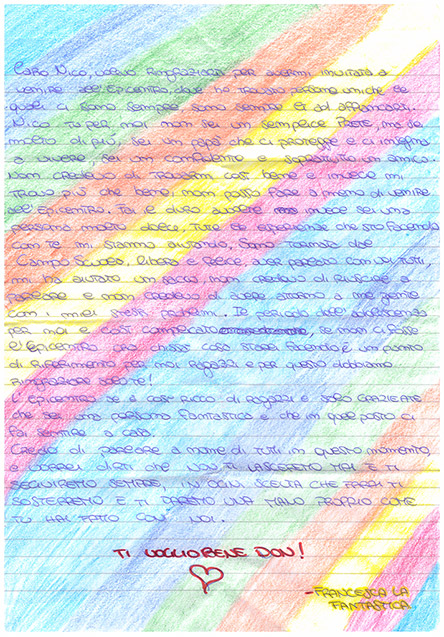 Caro Nico, voglio ringraziarti per avermi invitata a
venire all'Epicentro, dove ho trovato persone uniche le
quali ci sono sempre sono sempre lì ad affiancarti.
Nico tu per noi non sei un semplice Prete, ma sei
molto di più, sei un papà che ci protegge e ci insegna
a vivere sei un confidente e soprattutto un amico.
Non credevo di trovarmi così bene e invece mi
trovo più che bene, non posso fare a meno di venire
all'Epicentro. Fai il duro avvolte invece sei una
persona molto dolce, Tutte le esperienze che sto facendo
con te mi stanno aiutando. Sono tornata dal
Campo Scuola, libera e felice aver parlato con voi tutti
mi ha aiutato un sacco non credevo di riuscire a
parlare e non credevo di avere attorno a me gente
con i miei stessi problemi. Il periodo dell'adolescenza
per noi è così complicato, se non ci fosse
l'Epicentro ora chissà cosa starei facendo è un punto
di riferimento per noi ragazzi e per questo dobbiamo
ringraziare solo te!
L'Epicentro se è così ricco di Ragazzi è SOLO GRAZIE A TE
che sei una persona fantastica e che in quel posto ci
fai sentire a casa.
Credo di parlare a nome di tutti in questo momento,
e vorrei dirti che NON TI LASCEREMO MAI E TI
SEGUIREMO SEMPRE, IN OGNI SCELTA CHE FARAI TI
SOSTERREMO E TI DAREMO UNA MANO PROPRIO COME
TU HAI FATTO CON NOI.
TI VOGLIO BENE DON!
-FRANCESCA LA
FANTASTICA